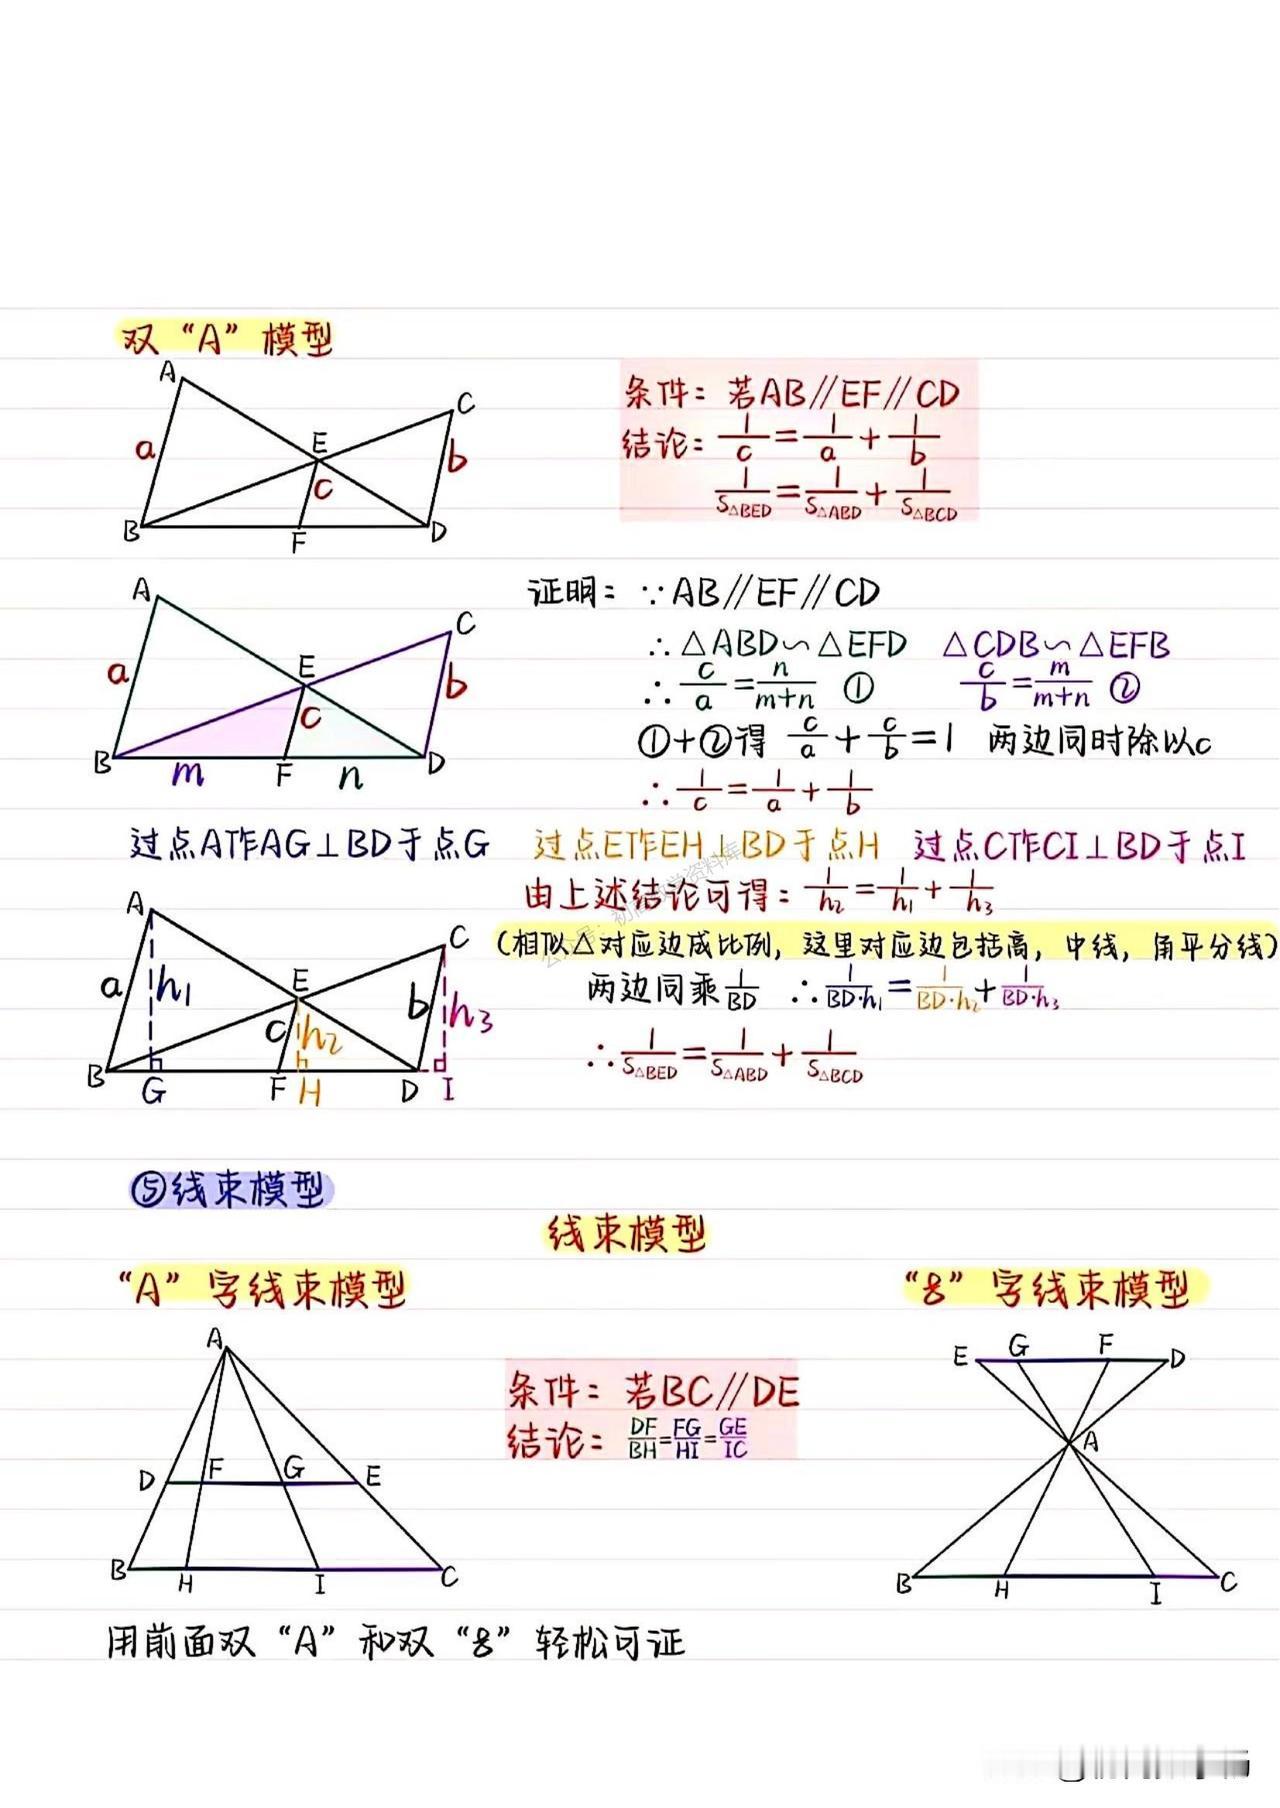 双“A”模型
A
C
a
E
b
c
B
F
D
条件：若AB∥EF∥CD
结论：1/c=1/a+1/b
1/S△BED=1/S△ABD+1/S△BCD
A
C
a
E
b
c
B
m
F
n
D
证明：∵AB∥EF∥CD
∴△ABD∽△EFD △CDB∽△EFB
∴c/a=n/m+n ① c/b=m/m+n ②
①+②得 c/a+c/b=1 两边同时除以c
∴1/c=1/a+1/b
过点A作AG⊥BD于点G 过点E作EH⊥BD于点H 过点C作CI⊥BD于点I
由上述结论可得：1/h₂=1/h₁+1/h₃
(相似△对应边成比例，这里对应边包括高，中线，角平分线)
两边同乘1/BD ∴1/BD·h₁=1/BD·h₂+1/BD·h₃
∴1/S△BED=1/S△ABD+1/S△BCD
A
C
a
h₁
E
b
h₃
c
h₂
B
G
F
H
D
I
⑤线束模型
线束模型
“A”字线束模型
“8”字线束模型
A
D
F
G
E
B
H
I
C
条件：若BC∥DE
结论：DF/BH=FG/HI=GE/IC
E
G
F
D
A
B
H
I
C
用前面双“A”和双“8”轻松可证